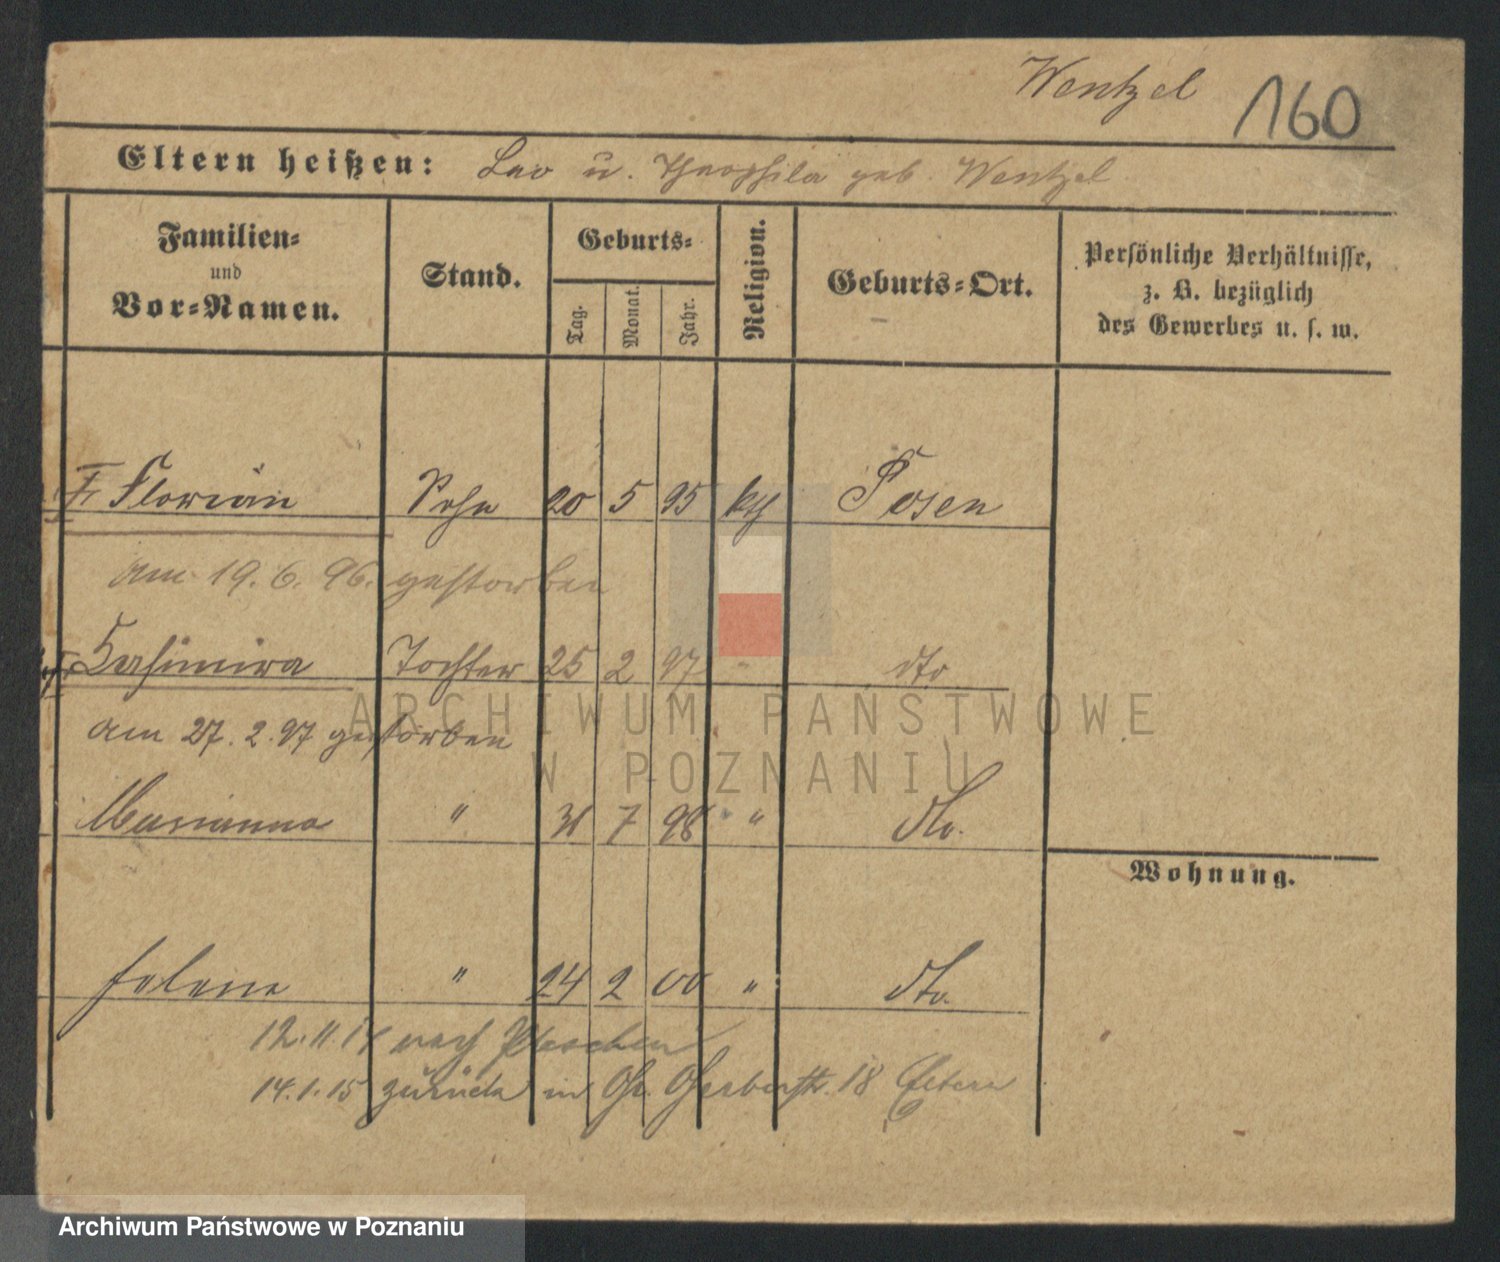 Wentzel
160
Eltern heißen: Leo u. Theophila geb. Wentzel
Familien=
und
Vor=Namen.
Stand.
Geburts=
Tag.
Monat.
Jahr.
Religion.
Geburts=Ort.
Persönliche Verhältnisse,
z. B. bezüglich
des Gewerbes u. s. w.
Florian Sohn 20 5 95 kth Posen
am 19. 6. 96. gestorben
Kasimira Tochter 25 2 97 " dto
am 27. 2. 97 gestorben
Marianna " 31 7 98 " dto.
Wohnung.
Helene " 24 2 00 " dto.
12.11.14 nach Pleschen
14.1.15 zurück in Gr. Gerberstr. 18 Eltern
ARCHIWUM PAŃSTWOWE
W POZNANIU
Archiwum Państwowe w Poznaniu